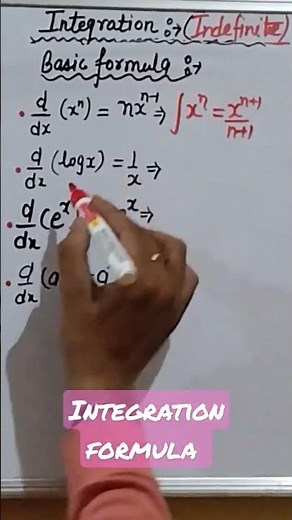 Integration :→ (Indefinite)
Basic formula :→
• d/dx (xⁿ) = nxⁿ⁻¹ ⇒ ∫xⁿ = xⁿ⁺¹/n+1
• d/dx (logx) = 1/x ⇒
• d/dx (eˣ ˣ ⇒
• d/dx (a
INTEGRATION
FORMULA